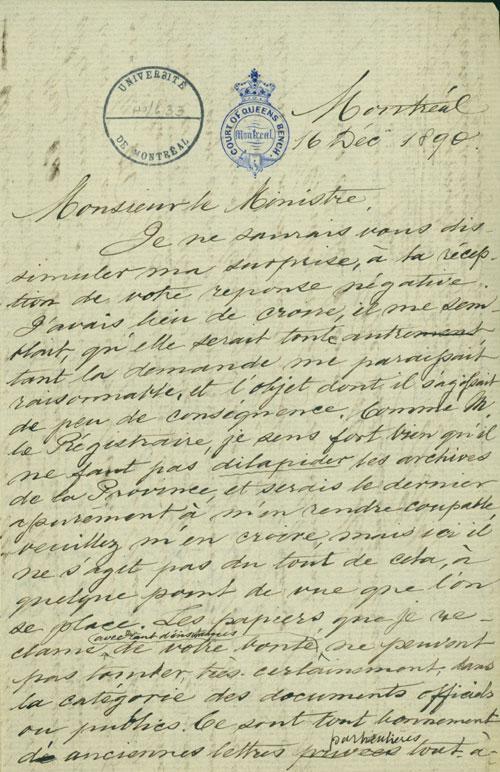 UNIVERSITÉ
DE MONTRÉAL
COURT OF QUEENS BENCH.
Montreal
Montréal
16 Dec 1890
Monsieur le Ministre,
Je ne saurais vous dis-
simuler ma surprise, à la récep-
tion de votre reponse négative.
J'avais lieu de croire, il me sem-
blait, qu'elle serait toute autrement,
tant la demande me paraissait
raisonnable, et l'objet dont il s'agissait
de peu de conséquence. Comme M.
le Régistraire, je sens fort bien qu'il
ne faut pas dilapider les archives
de la Province, et serais le dernier
assurément à m'en rendre coupable,
veuillez m'en croire, mais ici il
ne s'agit pas du tout de cela, à
quelque point de vue que l'on
se place. Les papiers que je ré-
clame avec tant d'instances de votre bonté, ne peuvent
pas tomber, très certainement, dans
la catégorie des documents officiels
ou publics. Ce sont tout bonnement
de anciennes lettres privées particulières tout à